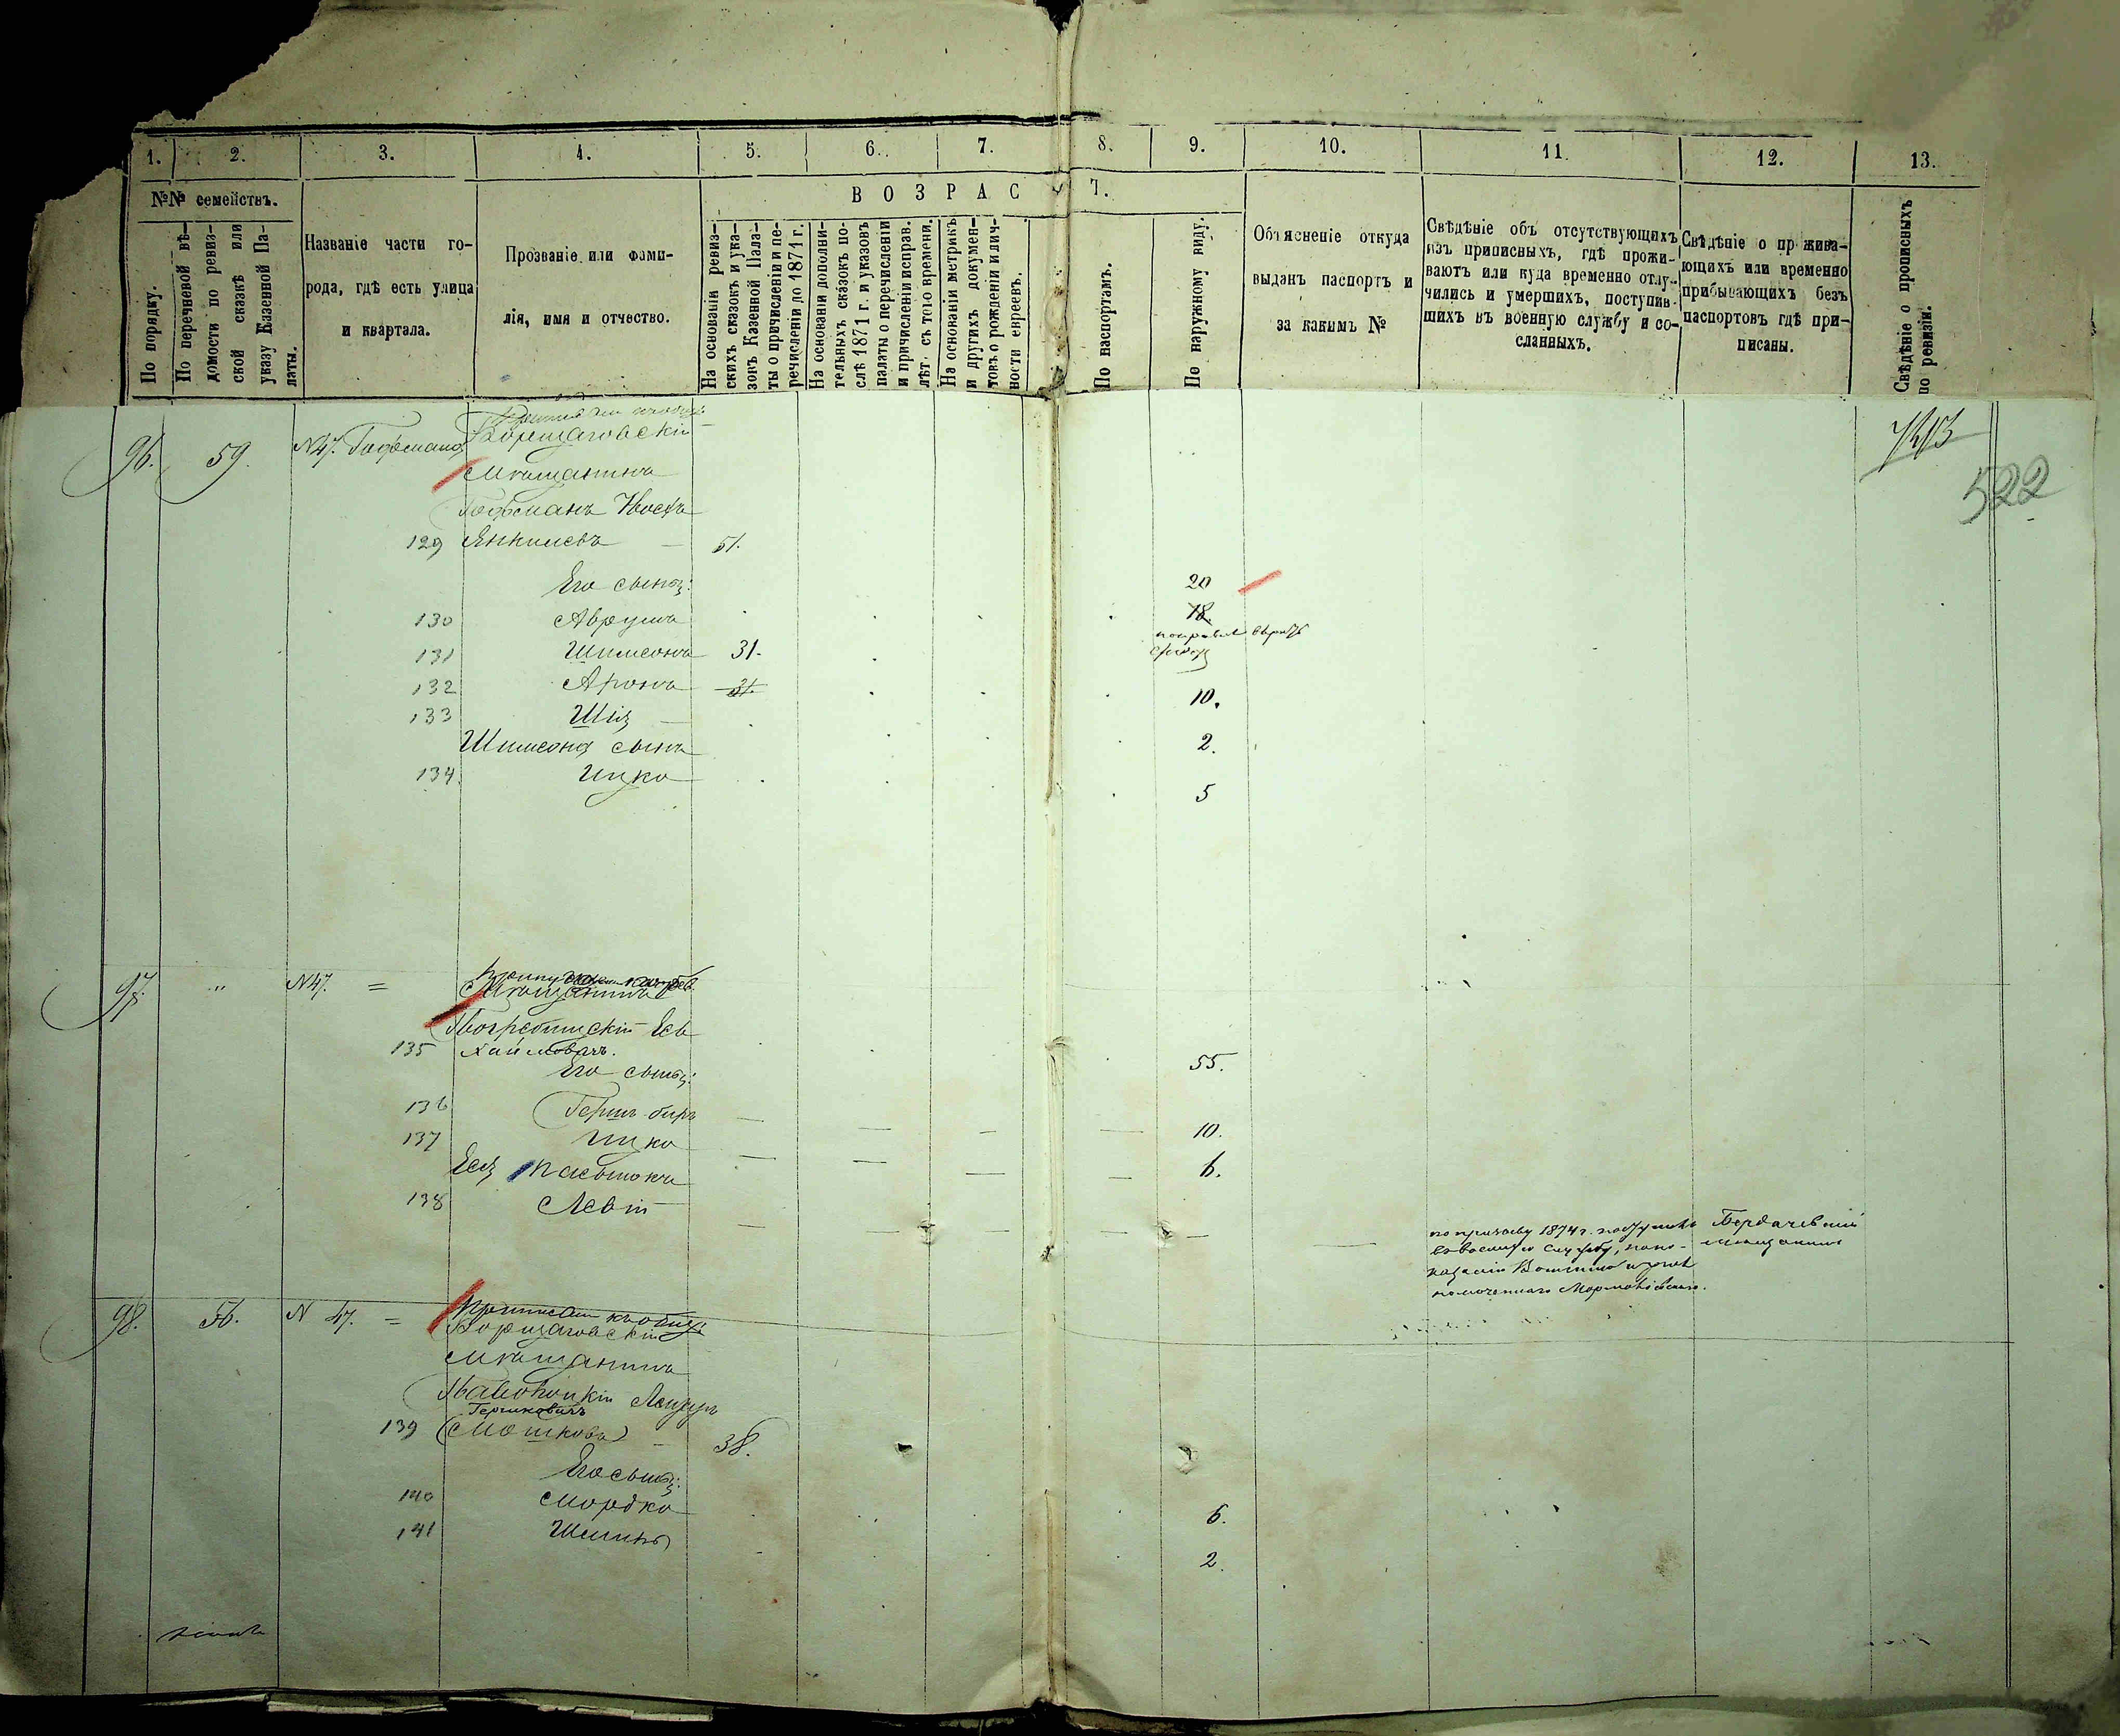 1. 2. 3. 4. 5. 6. 7. 8. 9. 10. 11. 12. 13.
№№ семействъ.
По порядку.
По перечневой вѣ-
домости по ревиз-
ской сказкѣ или
указу Казенной Па-
латы.
Названіе части го-
рода, гдѣ есть улица
и квартала.
Прозваніе или фами-
лія, имя и отчество.
ВОЗРАСТ.
На основаніи ревиз-
скихъ сказокъ и ука-
зокъ Казенной Пала-
ты о причисленіи и пе-
речисленіи до 1871 г.
На основаніи дополни-
тельныхъ сказокъ по-
слѣ 1871 г. и указовъ
палаты о перечисленіи
и причисленіи исправ.
лѣт. съ того времени.
На основаніи метрикъ
и другихъ докумен-
товъ о рожденіи и лич-
ности евреевъ.
По паспортамъ.
По наружному виду.
Объясненіе откуда
выданъ паспортъ и
за какимъ №
Свѣдѣніе объ отсутствующихъ
изъ приписныхъ, гдѣ прожи-
ваютъ или куда временно отлу-
чились и умершихъ, поступив-
шихъ въ военную службу и со-
сланныхъ.
Свѣдѣніе о прожива-
ющихъ или временно
прибывающихъ безъ
паспортовъ гдѣ при-
писаны.
Свѣдѣніе о прописныхъ
по ревизіи.
522
96. 59. N47. Гофмана
Борщаговскій
Мѣщанинъ
Гофманъ Иосъ
129 Янкилевъ 51.
Его сыны: 20
130 Аврумъ 18.
131 Шимсонъ 31.
132 Аронъ 31. 10.
133 Шія
Шимсона сынъ 2.
134. Ицко 5
97. " N47. =
Мѣщанинъ
Погребинскій Есь
135 Хаймовичъ. 55.
Его сыны:
136 Герш-беръ 10.
137 Ицко
Еся пасынокъ 6.
138 Левій
по призыву 1874 г. поступилъ
въ военную службу, по по-
казанію
Бердичевскій
мѣщанинъ
98. 56. N 47. =
Приписан къ общ.
Борщаговскій
Мѣщанинъ
Лейзеръ
Гершковичъ
139 (Мошковъ) 38.
Его сыны:
140 Мордко 6.
141 Шминъ 2.